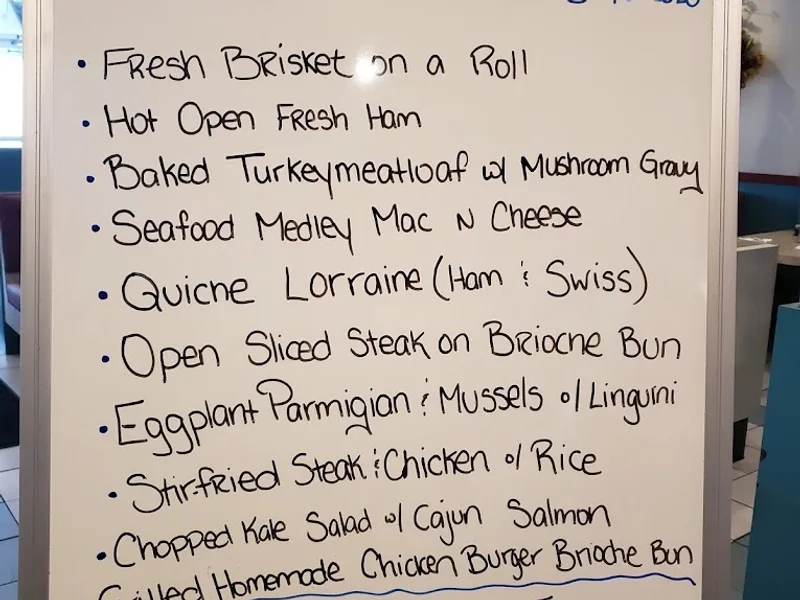 • Fresh Brisket on a Roll
• Hot Open Fresh Ham
• Baked Turkeymeatloaf w/ Mushroom Gravy
• Seafood Medley Mac N Cheese
• Quiche Lorraine (Ham & Swiss)
• Open Sliced Steak on Brioche Bun
• Eggplant Parmigian & Mussels o/ Linguini
• Stir-fried Steak & Chicken o/ Rice
• Chopped Kale Salad w/ Cajun Salmon
Grilled Homemade Chicken Burger Brioche Bun